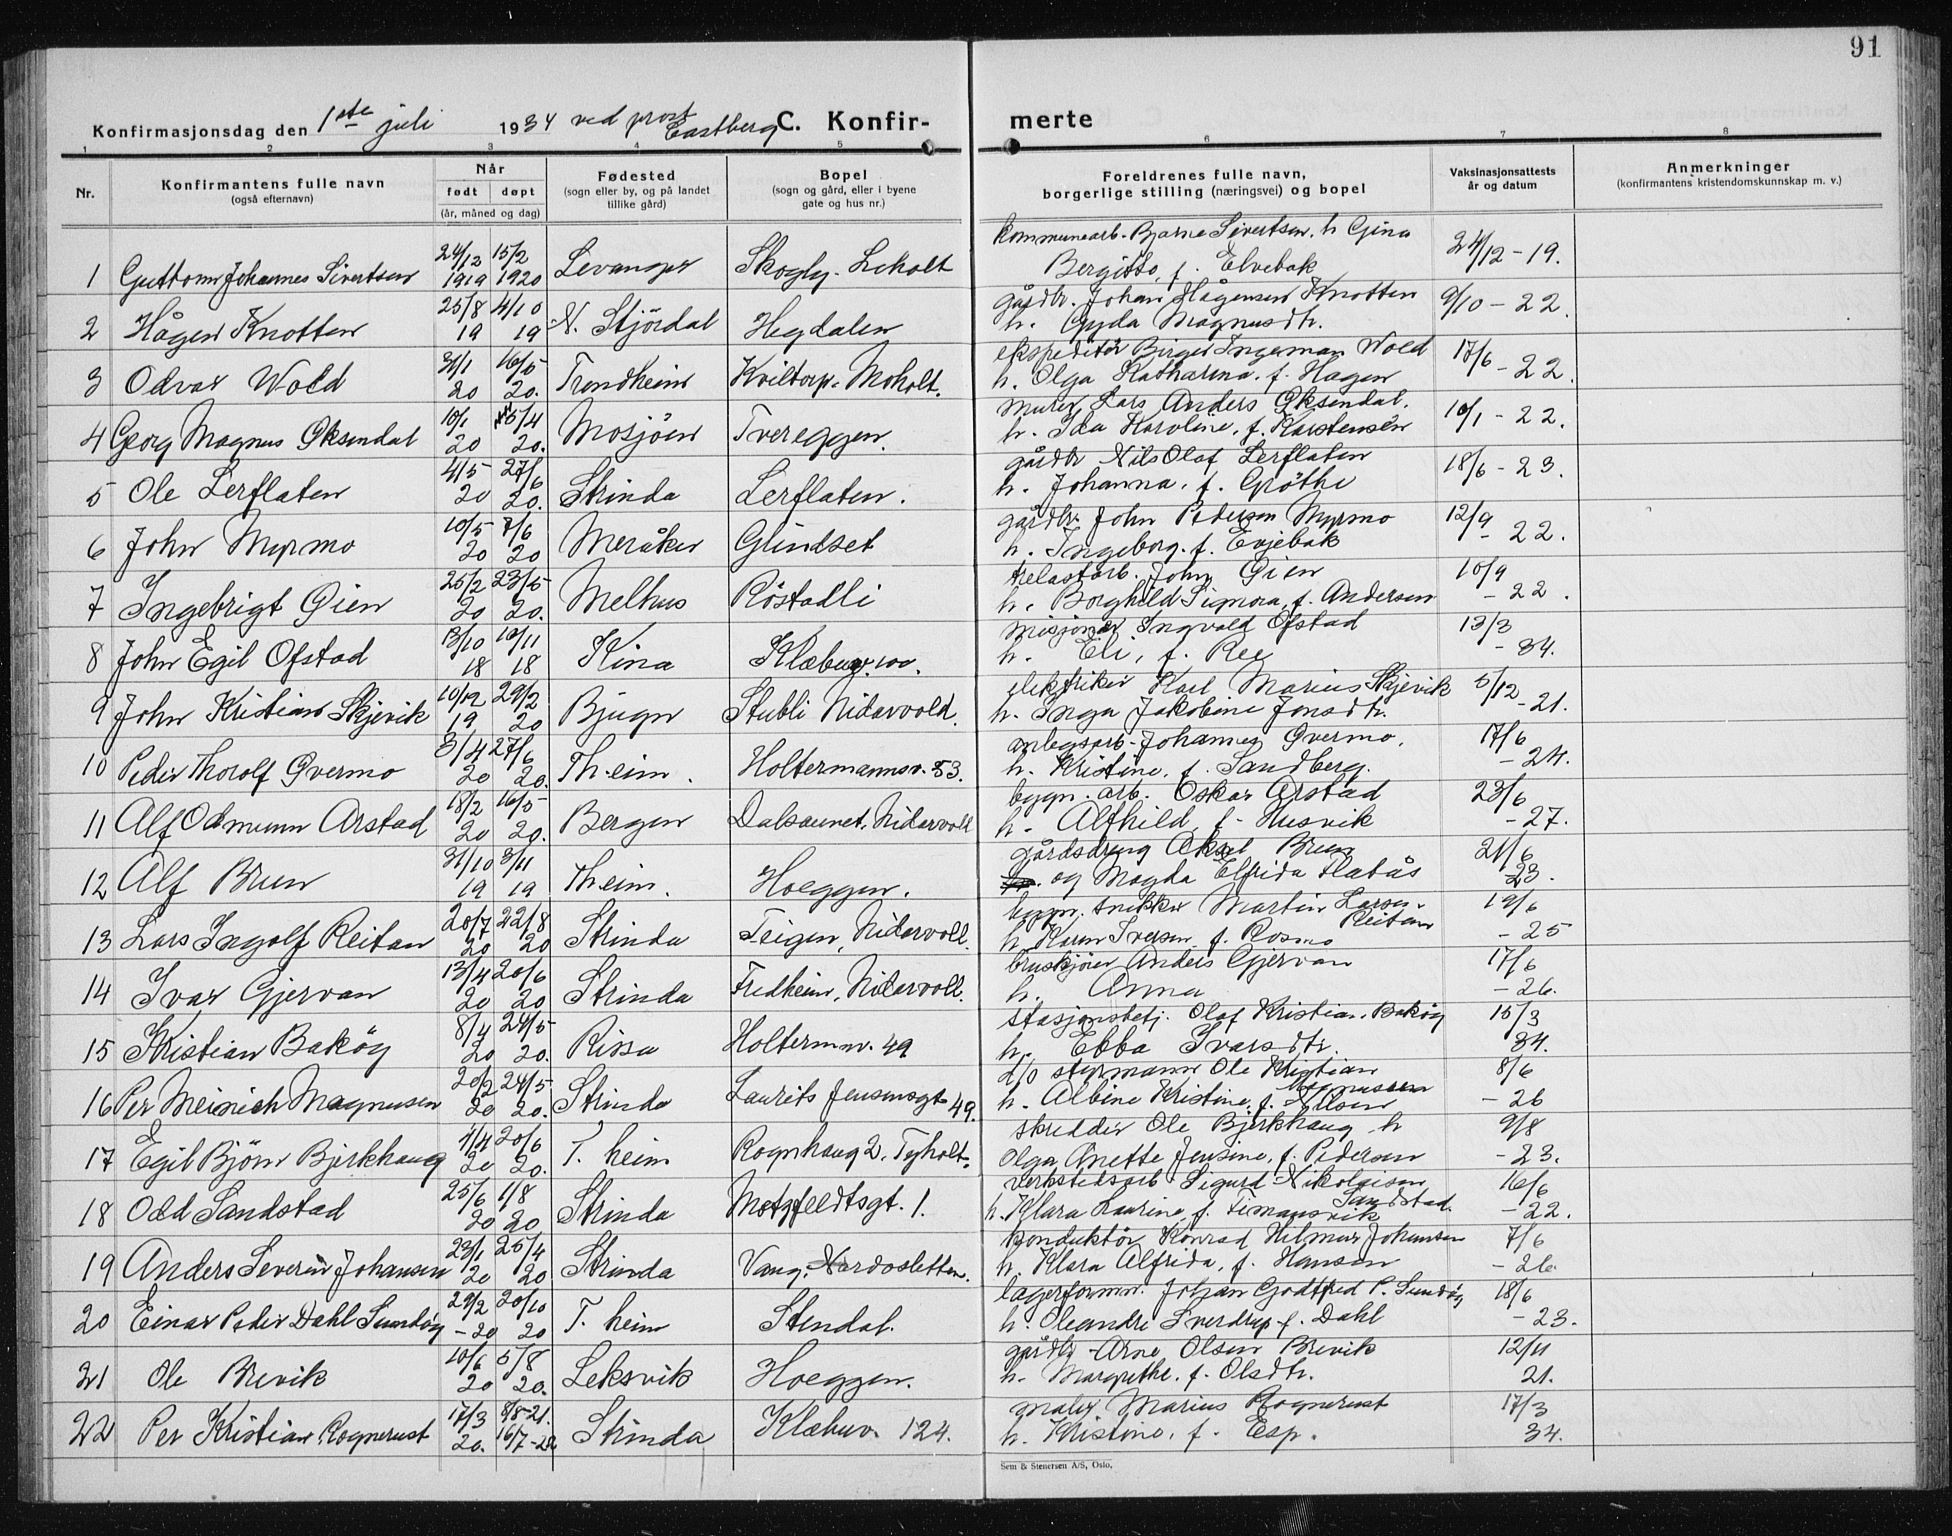 91
Konfirmasjonsdag den 1ste juli 1934 ved prost Castberg C. Konfir- merte
1 2 3 4 5 6 7 8
Nr. Konfirmantens fulle navn (også efternavn) Når født døpt (år, måned og dag) Fødested (sogn eller by, og på landet tillike gård) Bopel (sogn og gård, eller i byene gate og hus nr.) Foreldrenes fulle navn, borgerlige stilling (næringsvei) og bopel Vaksinasjonsattests år og datum Anmerkninger (konfirmantens kristendomskunnskap m. v.)
24/12 15/2 kommunearb. Bjarne Sivertsen, h Gina
1 Guttorm Johannes Sivertsen 1919 1920 Levanger Skogly. Leholt Bergitte, f. Elvebak 24/12 - 19.
25/8 4/10 gårdbr. Johan Hågensen Knotten 9/10 - 22.
2 Hågen Knotten 19 19 N. Stjördal Hegdalen h. Gyda Magnusdtr.
31/1 16/5 ekspeditör Birger Ingeman Wold 17/6 - 22.
3 Odvar Wold 20 20. Trondheim Kviltorp. Moholt. h. Olga Katharina. f. Hagen
10/1 5/4 murer Lars Anders Øksendal. 10/1 - 22.
4 Georg Magnus Øksendal 20 20. Mosjöen Tvereggen. h. Ida Karoline, f. Karstensen
4/5 27/6 gårdbr Nils Olaf Lerflaten 18/6 - 23.
5 Ole Lerflaten 20 20. Strinda Lerflaten. h. Johanna, f. Gröthe
10/5 7/6 gårdbr. John Pedersen Myrmo 12/9 - 22.
6 John Myrmo 20 20 Meråker Glindset h. Ingeborg. f. Evjebak
25/2 23/5 trelastarb. John Øien 10/9 - 22.
7 Ingebrigt Øien 20 20. Melhus Röstadli h. Borghild Signora, f. Andersen
13/10 10/11 misjonær Ingvald Ofstad 13/3 - 34.
8 John Egil Ofstad 18 18 Kina Klæbuv. 100. h. Eli, f. Ree
10/12 29/2 elektriker Karl Marius Skjevik 5/12 - 21.
9 John Kristian Skjevik 19 20 Bjugn Stubli Nidarvold. h. Inga Jakobine Jonsdtr.
3/4 27/6 anlegsarb. Johannes Øvermo. 17/6 - 24.
10 Peder Thorolf Øvermo 20 20. Th.eim. Holtermannsv. 53. h. Kristine, f. Sandberg.
18/2 16/5 bygn. arb. Oskar Arstad 23/6 - 27.
11 Alf Odmunn Arstad 20 20. Bergen Dalsaunet, Nidarvoll h. Alfhild, f. Husvik
31/10 3/11 gårdsdreng Aksel Brun 21/6 23.
12 Alf Brun 19 19 Th.eim. Hoeggen. og Magda Elfrida Flatås
20/7 22/8 bygn. snikker Martin Larsen Reitan 19/6 - 25
13 Lars Ingolf Reitan 20 20 Strinda Teigen, Nidarvoll. h. Karen Iversen f. Rosmo
13/4 20/6 bruskjörer Anders Gjervan 17/6 - 26.
14 Ivar Gjervan 20 20 Strinda Fredheim, Nidarvoll. h. Anna
8/4 24/5 stasjonsbetj. Olaf Kristian Bakög 15/3 34.
15 Kristian Bakög 20 20. Rissa Holtermnv. 49 h. Ebba Ivarsdtr.
20/2 24/5 d/o styrmann Ole Kristian Magnussen 8/6 - 26
16 Per Meinich Magnusen 20 20. Strinda Laurits Jensensgt 49. h. Albine Kristine, f. Nilsen
1/4 20/6 skredder Ole Bjerkhaug h 9/8 - 23.
17 Egil Björn Bjerkhaug 20 20. T. heim Rognhaug 2, Tyholt. Olga Anette Jensine, f. Pedersen
25/6 1/8 verkstedsarb Sigurd Nikolaisen Sandstad. 16/6 - 22.
18 Odd Sandstad 20 20 Strinda Metzfeldtsgt. 1. h. Klara Laurina, f. Timansvik
23/1 25/4 konduktör Konrad Hilmar Johansen 7/6 - 26.
19 Anders Severin Johansen 20 20 Strinda Vang. Nardosletten. h. Klara Alfrida, f. Hansen
29/2 20/10 lagerformn. Johan Godtfred P. Sundög 18/6 - 23.
20 Einar Peder Dahl Sundög - 20 20 T. heim Stendal. h. Oleandre Sverdrup f. Dahl
10/6 5/8 gårdbr Arne Olsen Brevik 12/11 21.
21 Ole Brevik 20 20. Leksvik Hoeggen. h. Margrethe. f. Olsdtr.
17/3 8/8-21. maler Marius Rognerust 17/3 34.
22 Per Kristian Rognerust 20. 16/7-22 Strinda Klæbuv. 124. h. Kristine, f. Esp.
Sem & Stenersen A/S, Oslo.